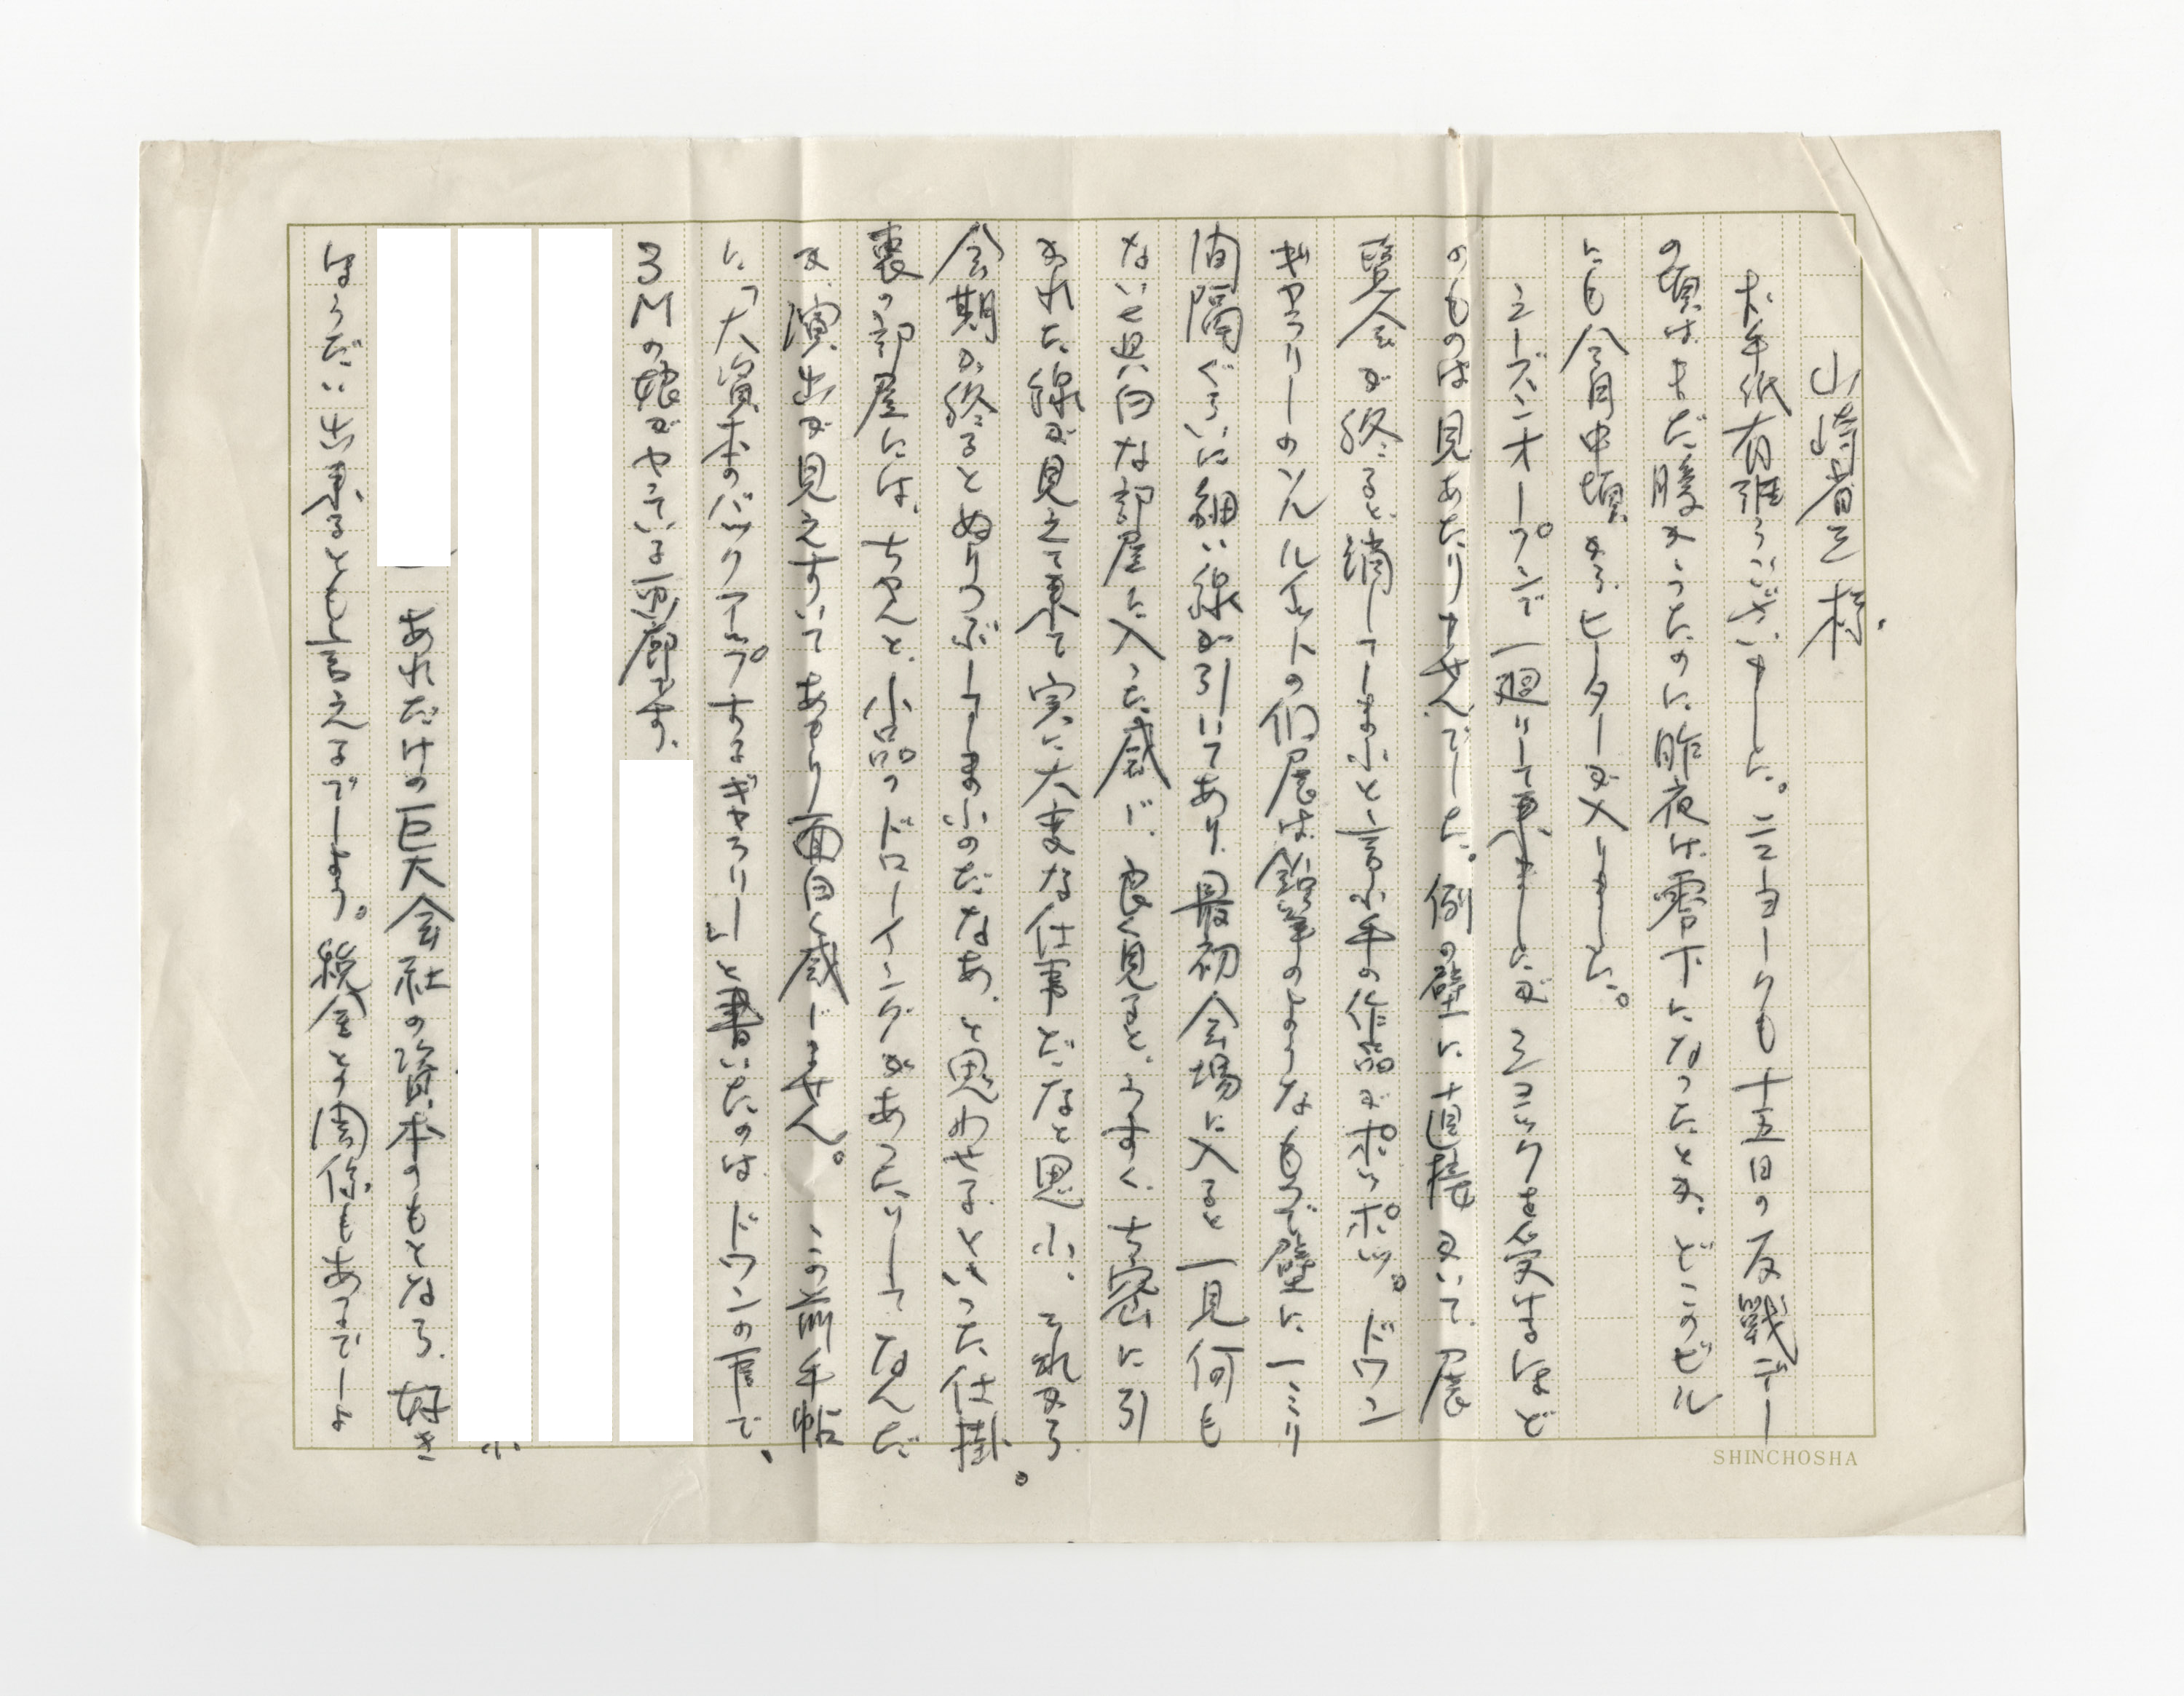 山崎省三様
お手紙有難うございました。ニューヨークも十五日の反戦デー
の頃はまだ暖かったのに昨夜は零下になったとか、どこのビル
にも今月中頃からヒーターが入りました。
シーズンオープンで一廻りして来ましたがショックを受けるほど
のものは見あたりませんでした。例の壁に直接かいて、展
覧会が終ると消してしまふと言ふ手の作品がポツポツ。ドワン
ギャラリーのソル ルイットの個展は鉛筆のようなもので壁に一ミリ
間隔ぐらいに細い線が引いてあり、最初会場に入ると一見何も
ないと真白な部屋に入った感じ、良く見ると、うすく、ち密に引
かれた線が見えて来て実に大変な仕事だなと思ふ。それから
会期が終るとぬりつぶしてしまふのだなあ、と思わせるといった仕掛。
裏の部屋には、ちゃんと、小品のドローイングがあったりして、なんだ
か、演出が見えすいてあまり面白く感じません。この前手帖
に、「大資本のバックアップするギャラリー」と書いたのは、ドワンの事で、
3Mの娘がやっている画廊です。
あれだけの巨大会社の資本のもとなら、好き
ほうだい出来るとも言えるでしょう。税金との関係もあるでしょ
SHINCHOSHA